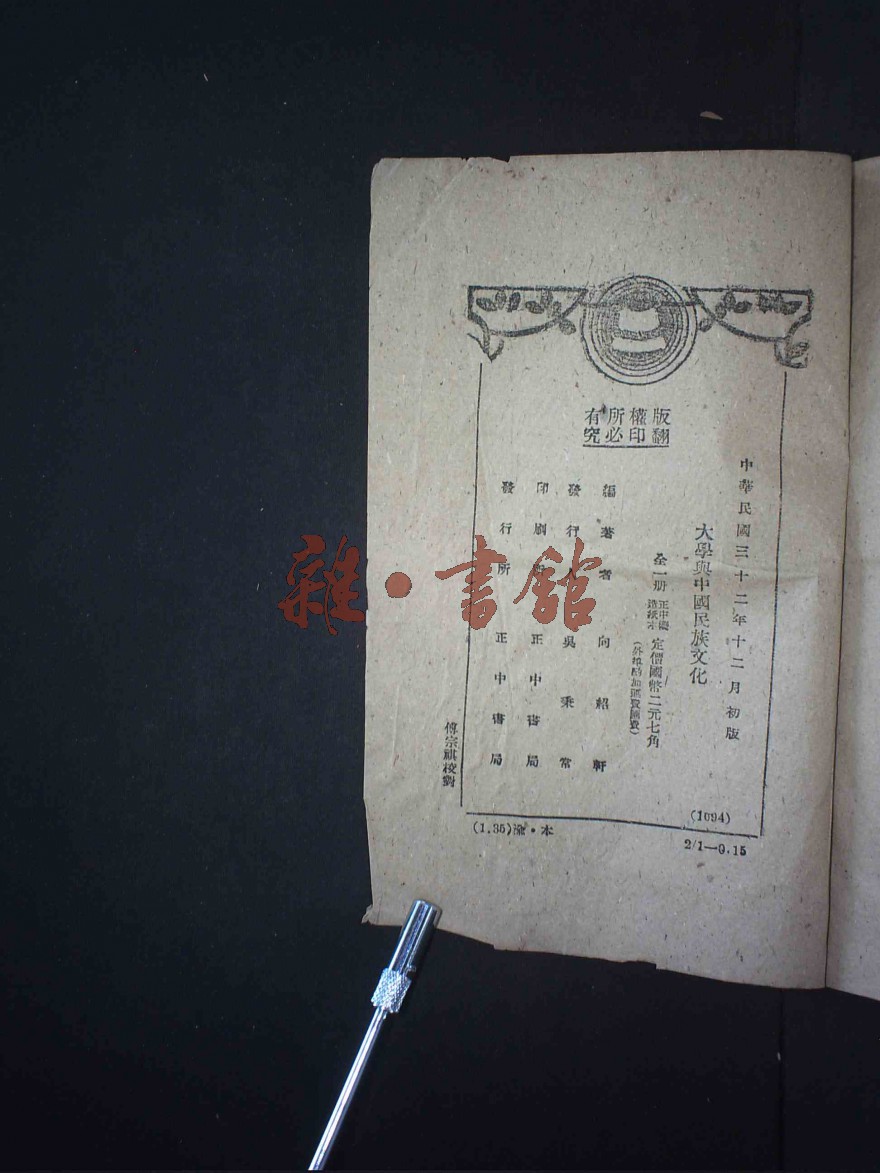 版權所有
翻印必究
中華民國三十二年十二月初版
大學與中國民族文化
全一册 正中 造紙本 定價國幣二元七角
(外埠酌加運費匯費)
編著者 向紹軒
發行人 吳秉常
印刷所 正中書局
發行所 正中書局
傅宗祺校對
(1094)
(1.35)渝·本
2/1—0.15
雜·書館